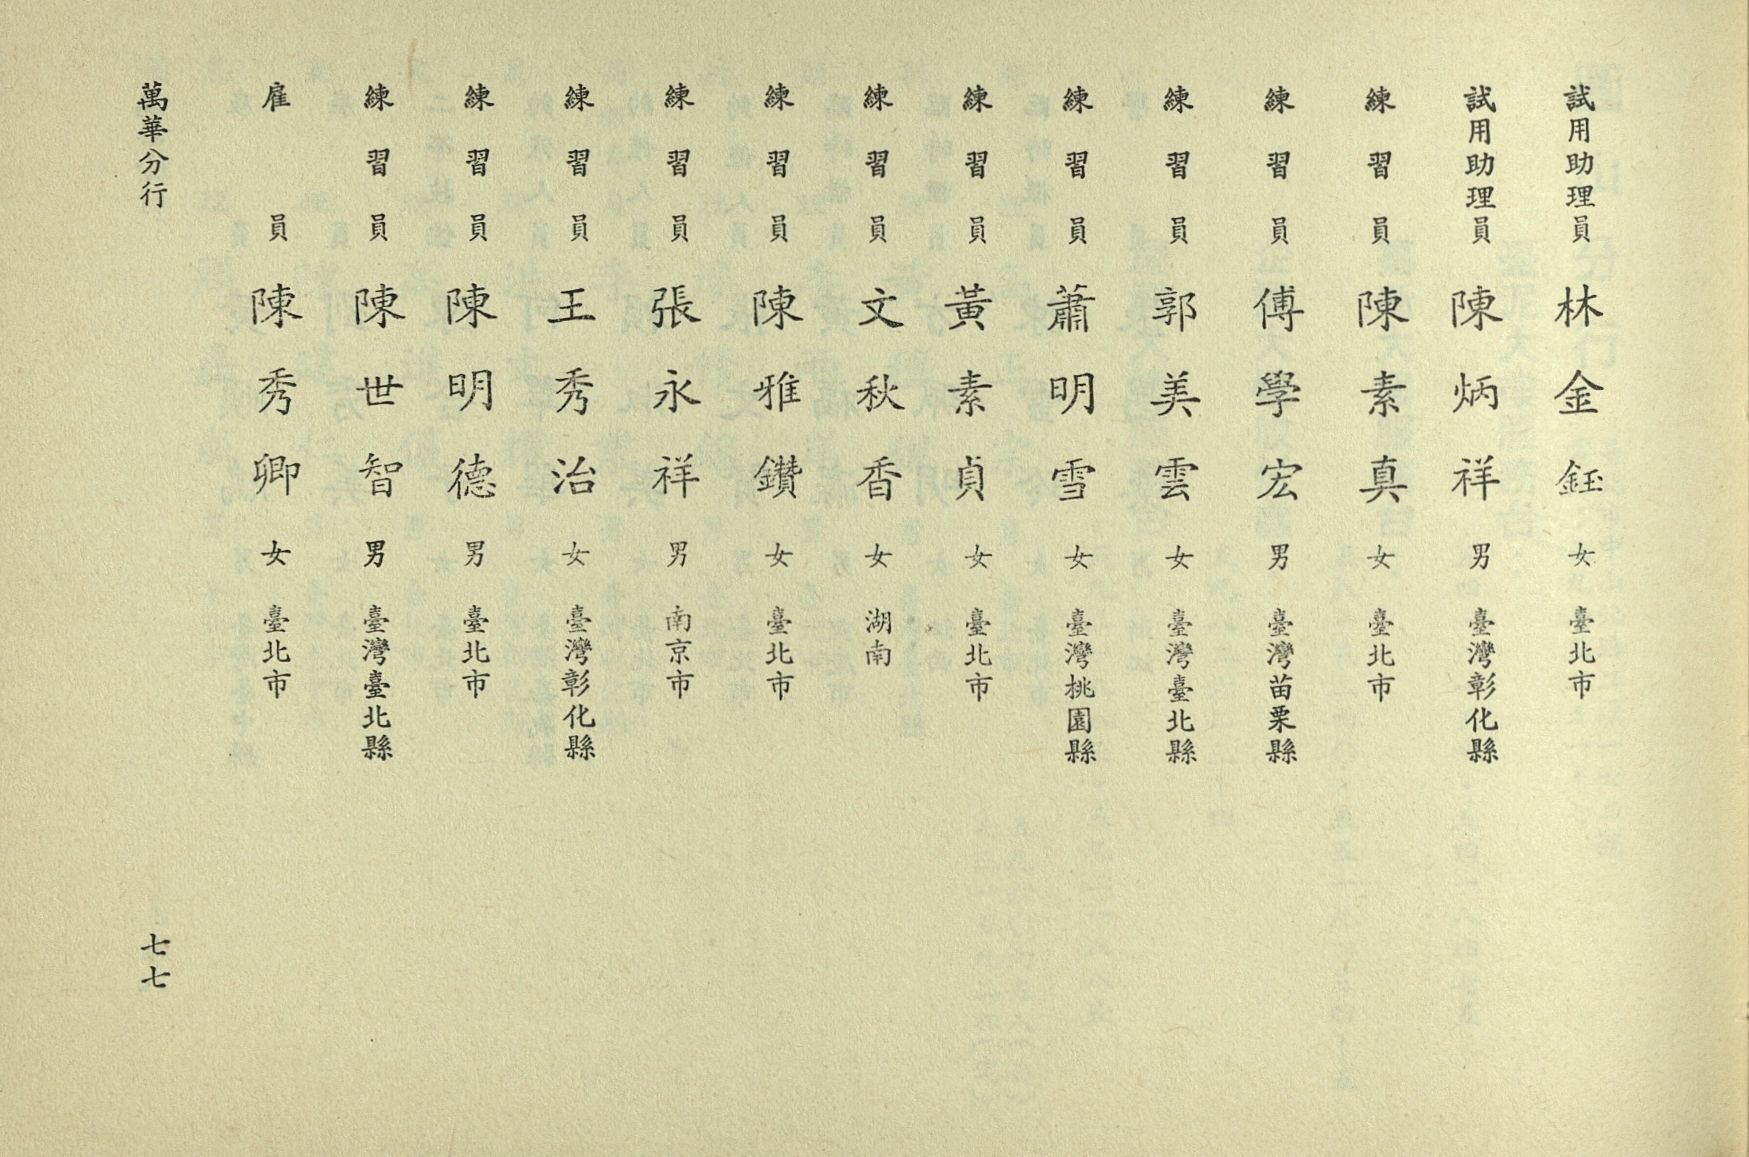 試用助理員 林金鈺 女 臺北市
試用助理員 陳炳祥 男 臺灣彰化縣
練習員 陳素真 女 臺北市
練習員 傅學宏 男 臺灣苗栗縣
練習員 郭美雲 女 臺灣臺北縣
練習員 蕭明雪 女 臺灣桃園縣
練習員 黃素貞 女 臺北市
練習員 文秋香 女 湖南
練習員 陳雅鑽 女 臺北市
練習員 張永祥 男 南京市
練習員 王秀治 女 臺灣彰化縣
練習員 陳明德 男 臺北市
練習員 陳世智 男 臺灣臺北縣
雇員 陳秀卿 女 臺北市
萬華分行
七七